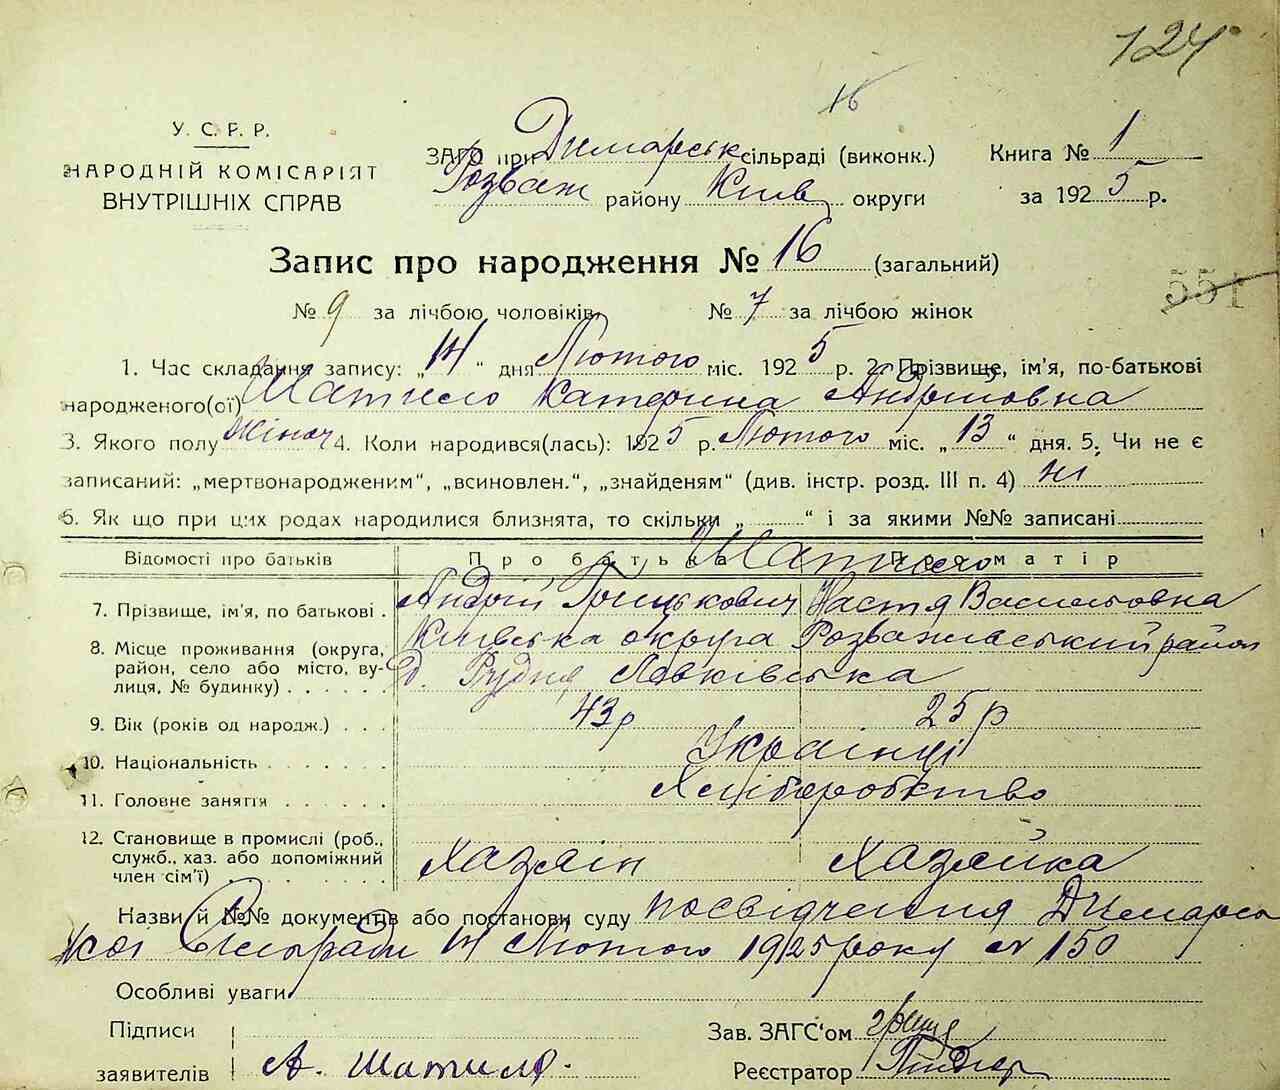 124
16
У. С. Р. Р.
НАРОДНІЙ КОМІСАРІЯТ
ВНУТРІШНІХ СПРАВ
ЗАГС при Димарськ сільраді (виконк.) Книга № 1
Розваж району Київ округи за 1925 р.
Запис про народження № 16 (загальний)
551
№ 9 за лічбою чоловіків № 7 за лічбою жінок
1. Час складання запису: „14“ дня Лютого міс. 1925 р. 2. Прізвище, ім'я, по-батькові
народженого(ої) Шатило Катерина Андріівна
3. Якого полу жіноч 4. Коли народився(лась): 1925 р. Лютого міс. „13“ дня. 5. Чи не є
записаний: „мертвонародженим“, „всиновлен.“, „знайденям“ (див. інстр. розд. III п. 4) ні
6. Як що при цих родах народилися близнята, то скільки „ “ і за якими №№ записані
Відомості про батьків Про батька Про матір
Шатило
7. Прізвище, ім'я, по батькові . Андрій Грицькович Настя Васильовна
8. Місце проживання (округа, район, село або місто, вулиця, № будинку) Київська округа Розважаський район
д. Рудня Левківська
9. Вік (років од народж.) 43 р 25 р
10. Національність Украінці
11. Головне заняття Хліборобство
12. Становище в промислі (роб., служб., хаз. або допоміжний член сім'ї) хазяін хазяйка
Назви й №№ документів або постанови суду посвідчення Димарсь
кої Сільради 14 Лютого 1925 року № 150
Особливі уваги
Підписи Зав. ЗАГС'ом
заявителів А. Шатило. Реєстратор